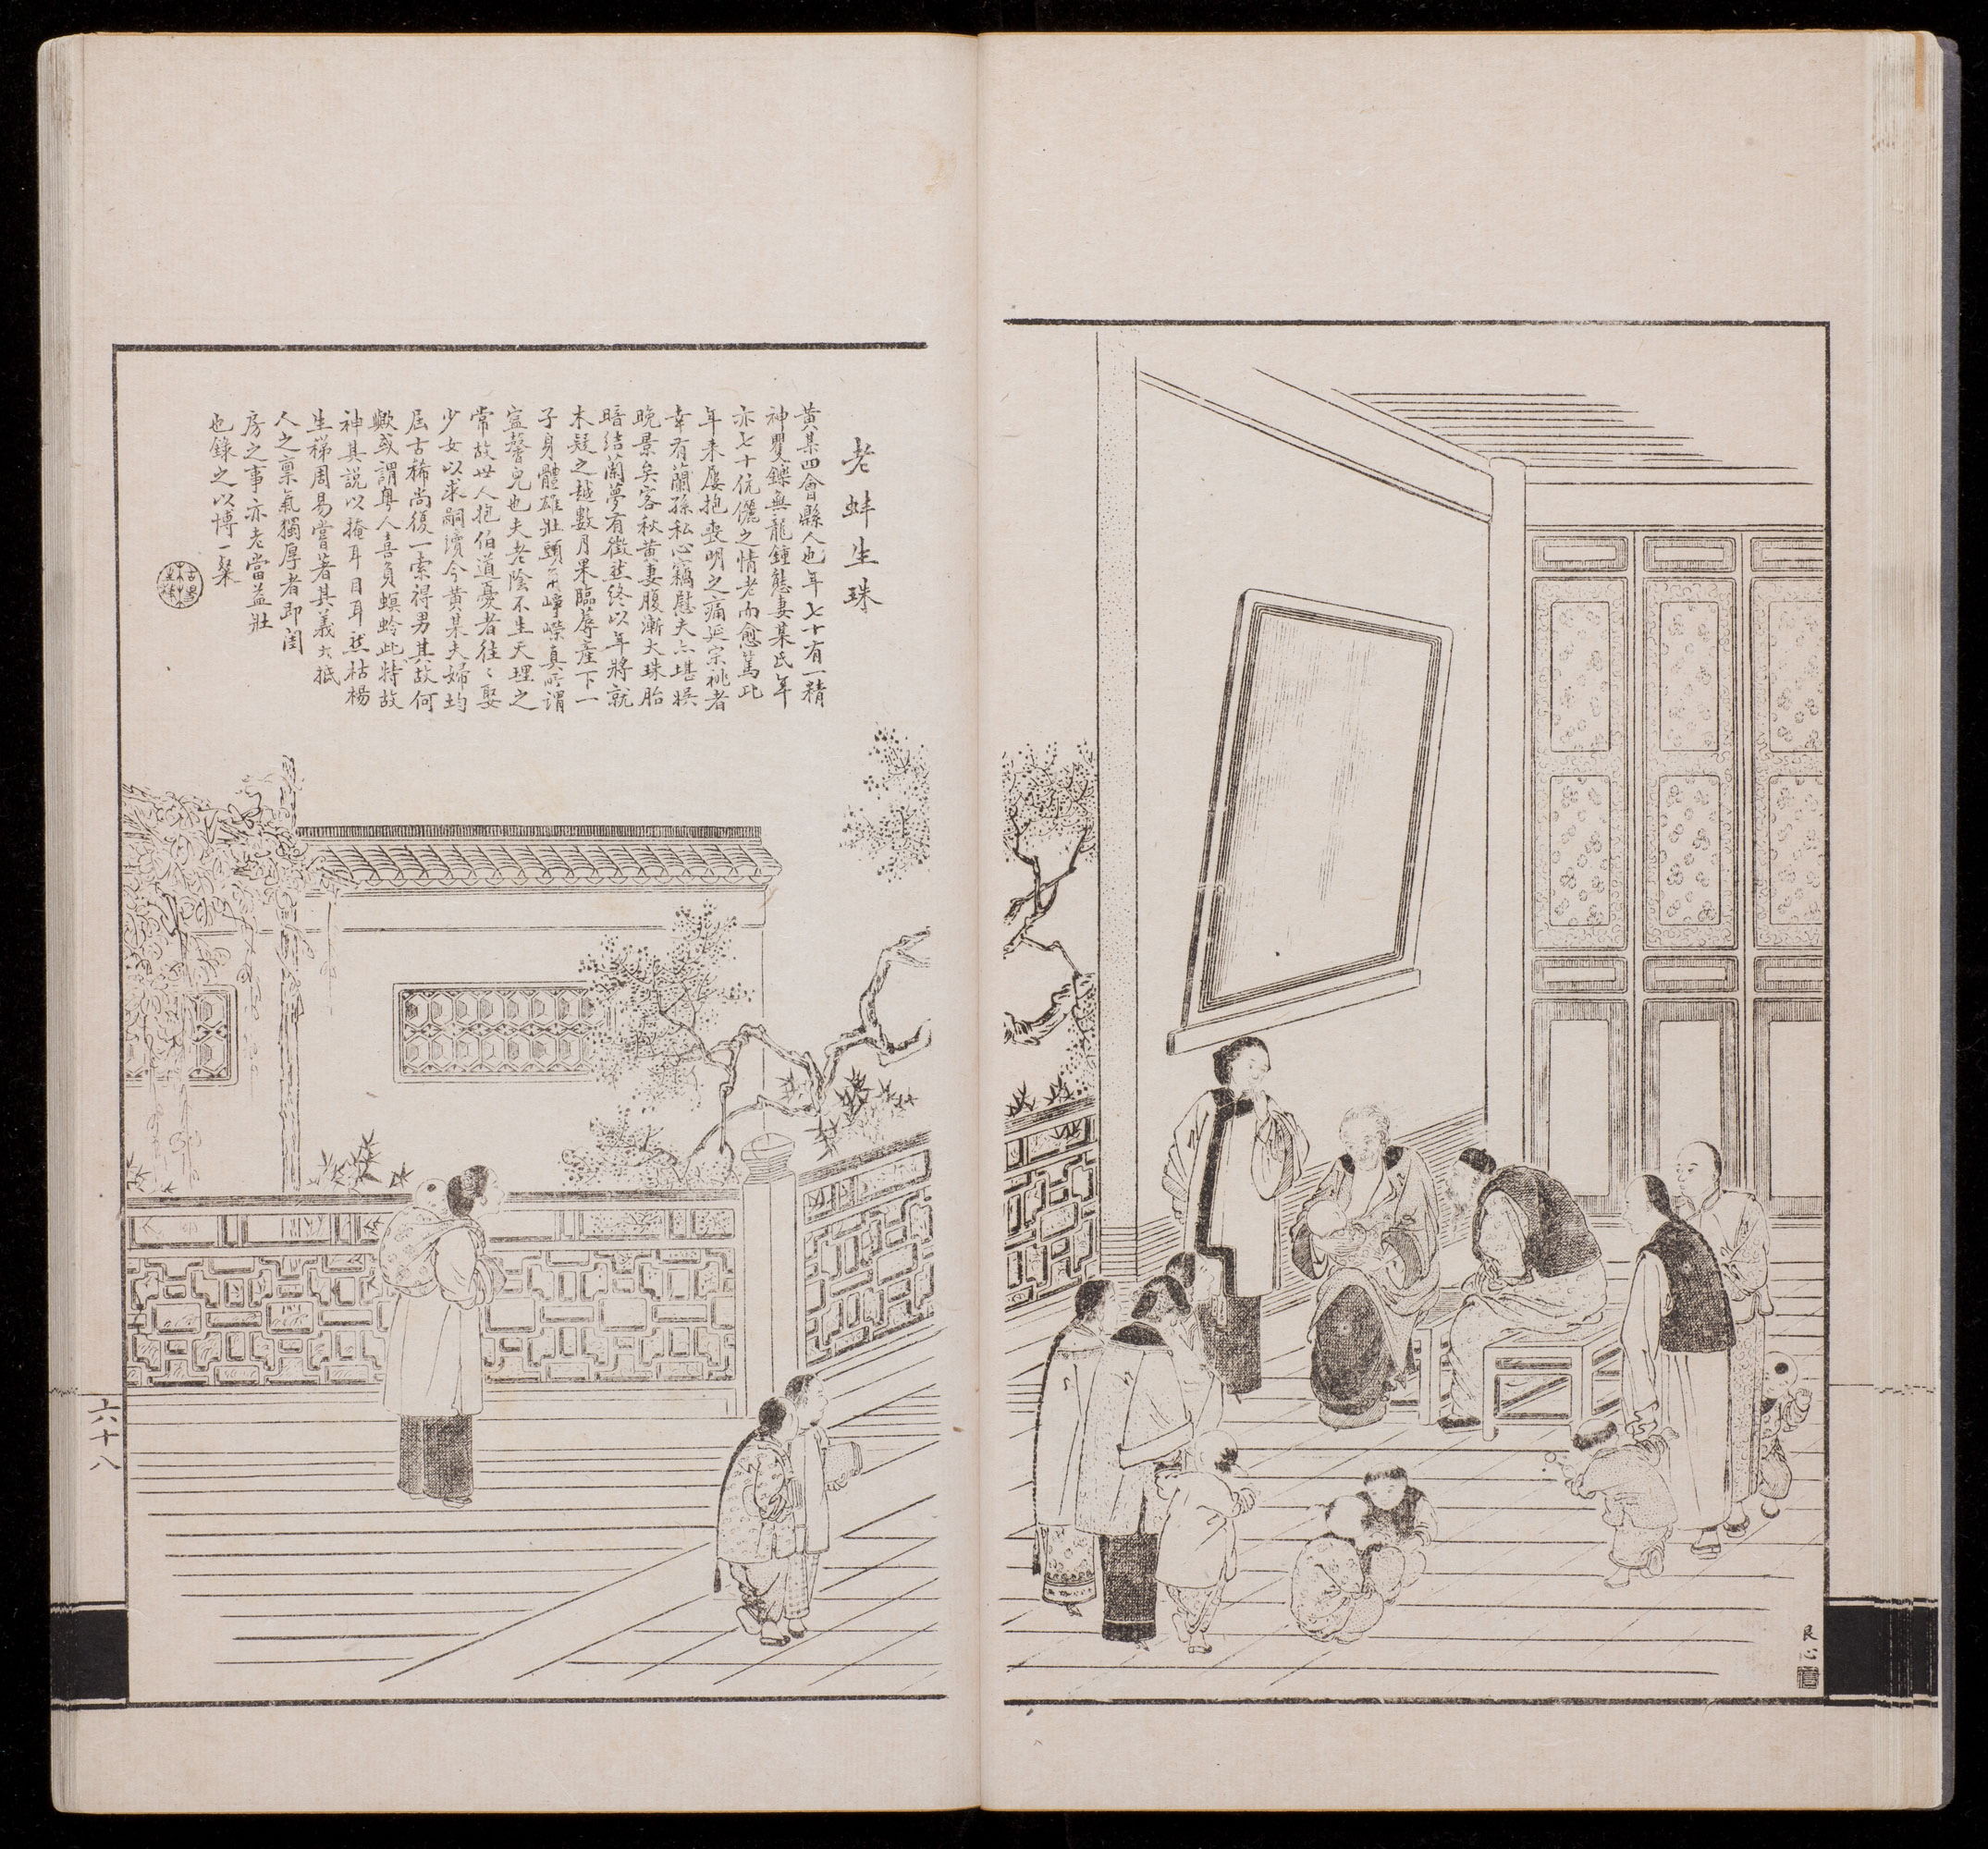 老蚌生珠
黃某四會縣人也年七十有一精
神矍鑠無龍鍾態妻某氏年
亦七十伉儷之情老而愈篤比
年來屢抱喪明之痛延宗祧者
幸有蘭孫私心竊慰夫亦堪娛
晚景矣客秋黃妻腹漸大珠胎
暗結蘭夢有徵然終以年將就
木疑之越數月果臨蓐產下一
子身體雄壯頭角崢嶸真所謂
寧馨兒也夫老陰不生天理之
常故世人抱伯道憂者往〻娶
少女以求嗣續今黃某夫婦均
屆古稀尚復一索得男其故何
歟或謂粵人喜負螟蛉此特故
神其説以掩耳目耳然枯楊
生稊周易嘗著其義大抵
人之稟氣獨厚者即閨
房之事亦老當益壯
也錄之以博一粲
六十八
艮心